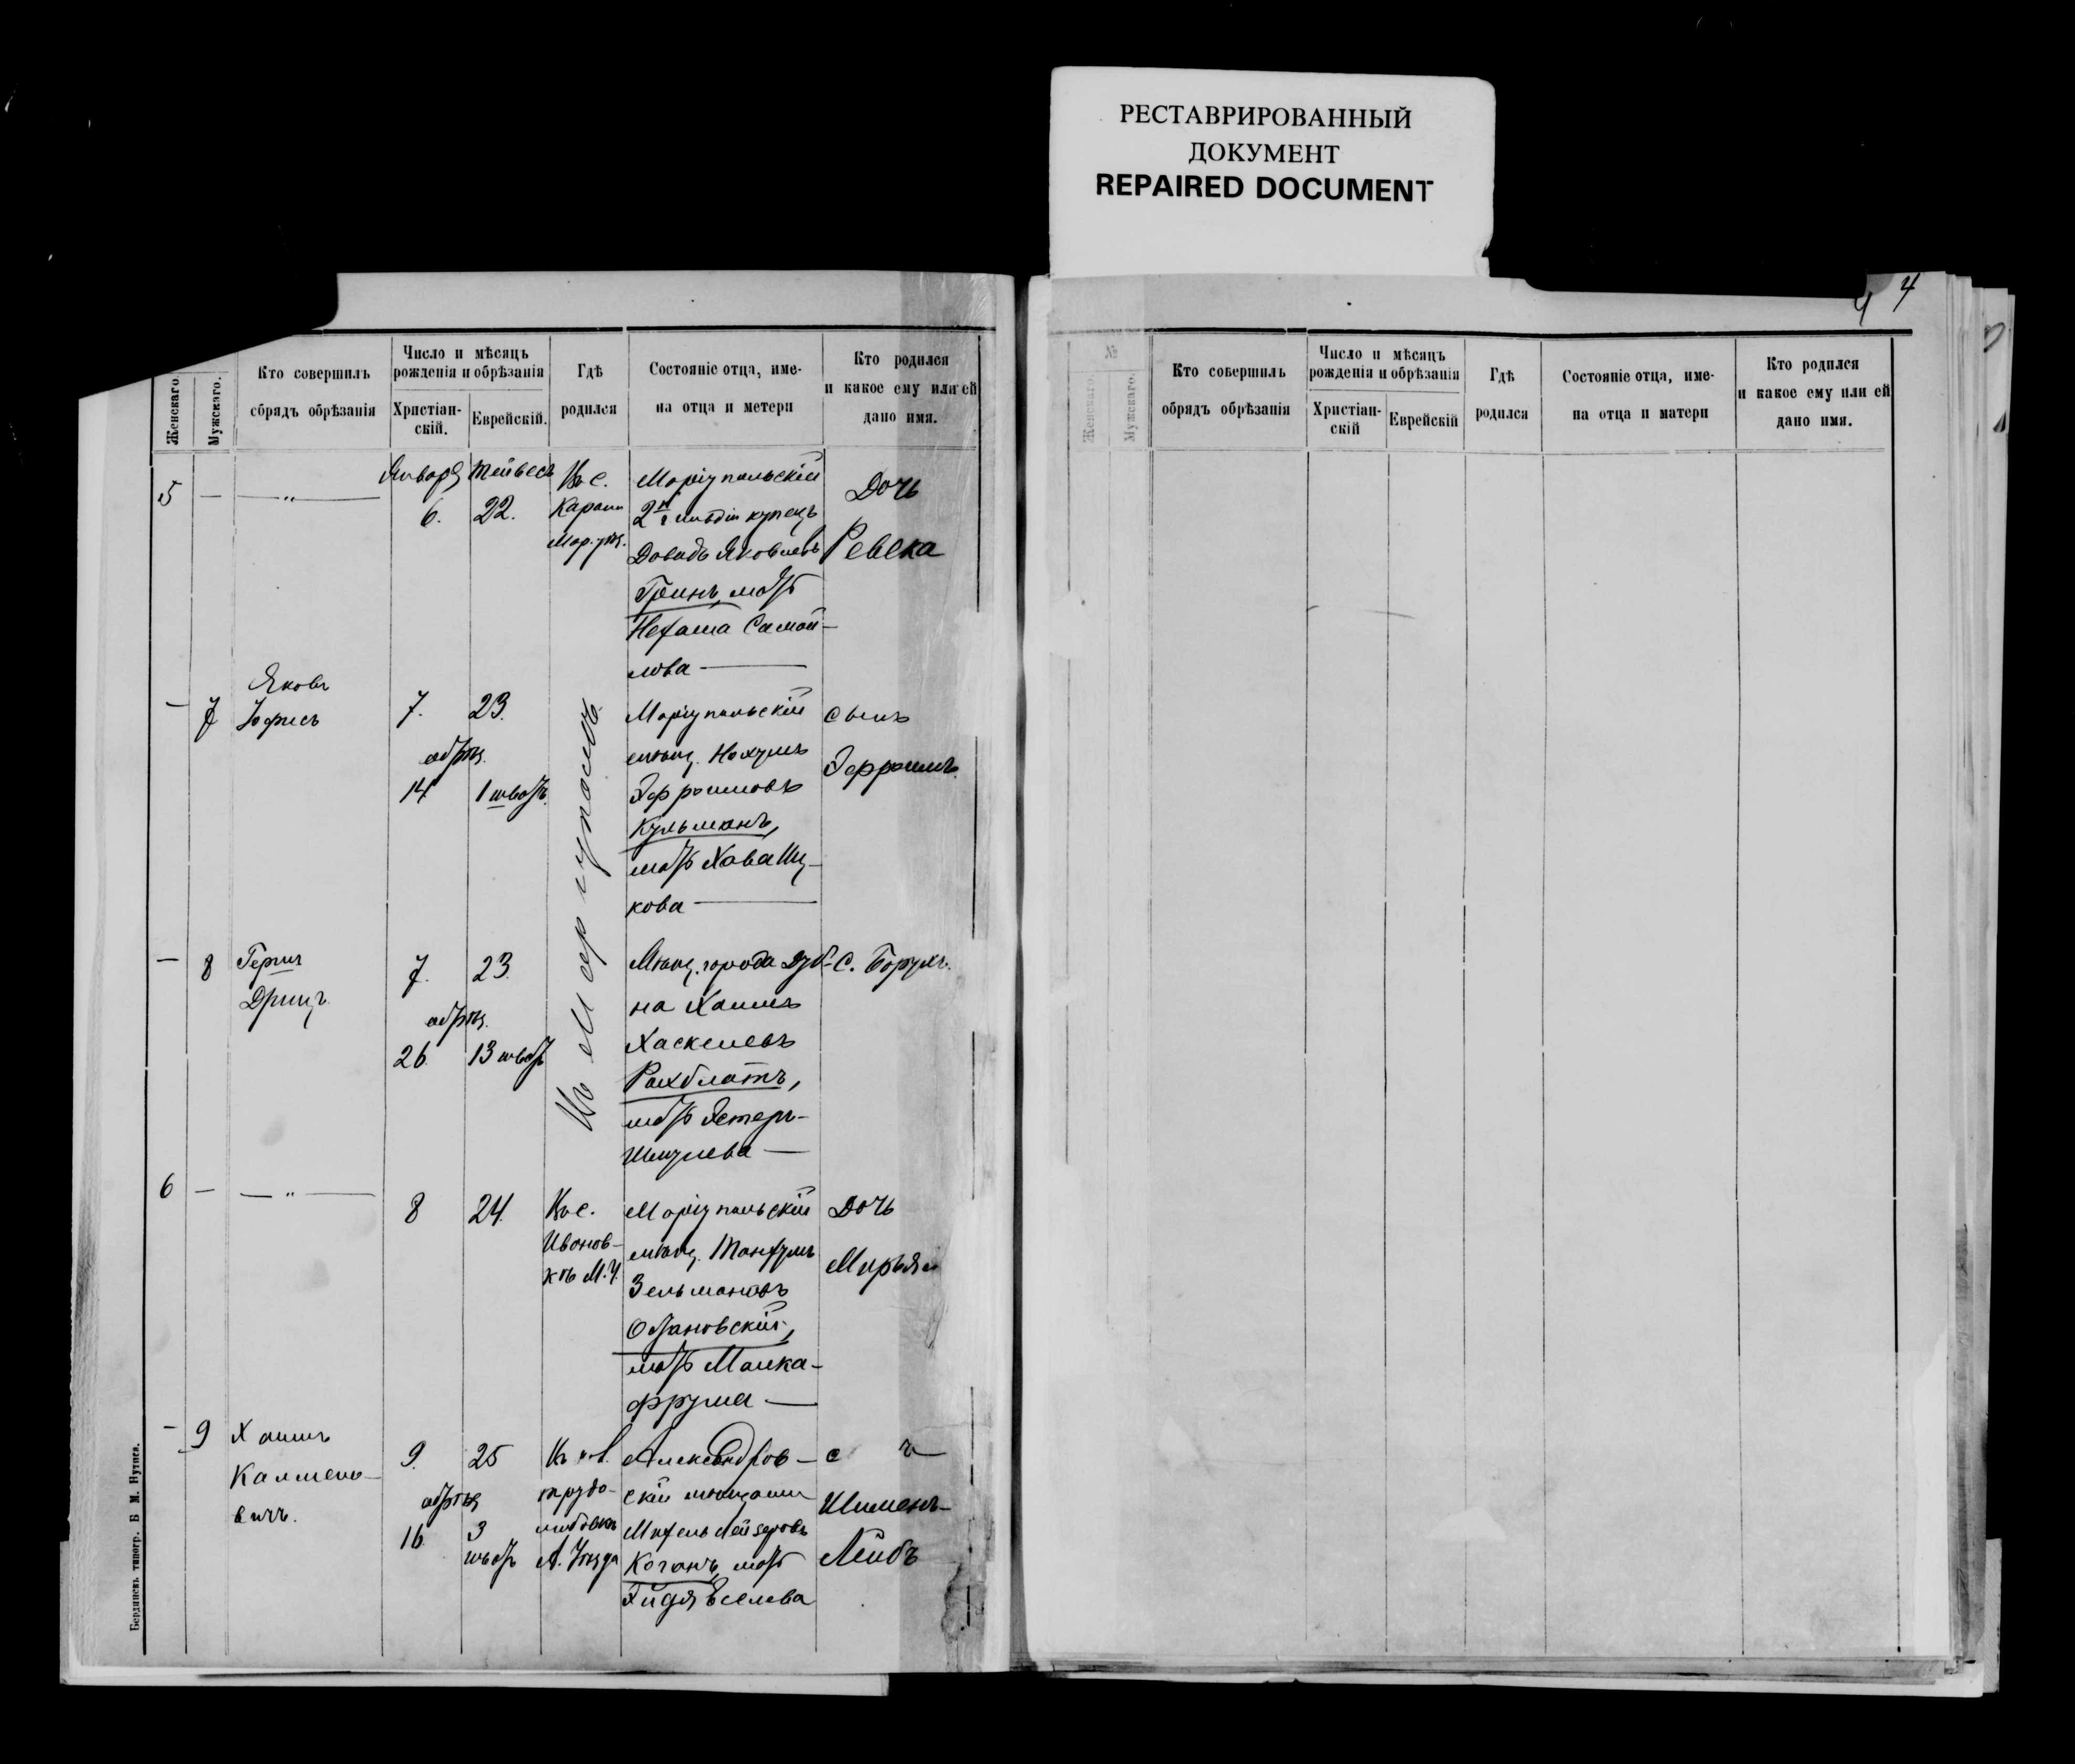 РЕСТАВРИРОВАННЫЙ
ДОКУМЕНТ
REPAIRED DOCUMENT
4 4
Женскаго.
Мужскаго.
Кто совершилъ
сбрядъ обрѣзанія
Число и мѣсяцъ
рожденія и обрѣзанія
Христіан-
скій.
Еврейскій.
Гдѣ
родился
Состояніе отца, име-
на отца и метери
Кто родился
и какое ему или ей
дано имя.
5 — — „ —
Января
6.
Тейвесъ
22.
Въ с.
Карани
Мар. уѣз.
Маріупольскій
2й гильдіи купецъ
Довидъ Яковлевъ
Гринъ, мать
Нехама Самой-
лова —
Дочь
Ревека
— 7
Яковъ
Іофисъ
7.
обрѣз.
14
23.
1 шватъ.
Въ Маріуполѣ
Маріупольскій
мѣщ. Нахумъ
Эфроимовъ
Кульманъ,
мать Хава Иц-
кова —
сынъ
Эфроимъ.
— 8
Гершъ
Дрицъ.
7.
обрѣз.
26.
23.
13 шватъ
Мѣщ. города Дуб-
на Хаимъ
Хаскелевъ
Ройхблатъ,
мать Эстеръ-
Шмулева —
С. Борухъ.
6 — — „ —
8
24.
Въ с.
Иванов-
кѣ М. У.
Маріупольскій
мѣщ. Танхумъ
Зельмановъ
мать Малка-
Фрума —
Дочь
Мирьям
— 9
Хаимъ
Калмено-
вичъ.
9.
обрѣз
16
25
3
шватъ
Въ кол.
трудо-
любовкѣ
А. Уѣзда
Александров-
скій мѣщанин
Михель Лейзеровъ
Коганъ, мать
Эйдя Іоселева
с ъ
Шименъ-
Лейбъ
Бердянскъ типогр. Б М. Нутиса.
№
Женскаго.
Мужскаго.
Кто совершилъ
обрядъ обрѣзанія
Число и мѣсяцъ
рожденія и обрѣзанія
Христіан-
скій
Еврейскій
Гдѣ
родился
Состояніе отца, име-
на отца и матери
Кто родился
и какое ему или ей
дано имя.